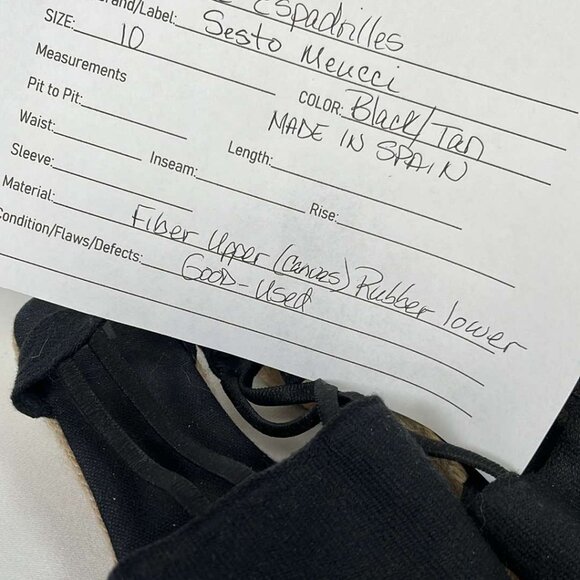 Espadrilles
Brand/Label: Sesto Meucci
SIZE: 10
COLOR: Black/Tan
MADE IN SPAIN
Measurements
Pit to Pit:
Length:
Waist:
Inseam:
Rise:
Sleeve:
Material: Fiber Upper (canvas) Rubber lower
Condition/Flaws/Defects: GOOD-Used